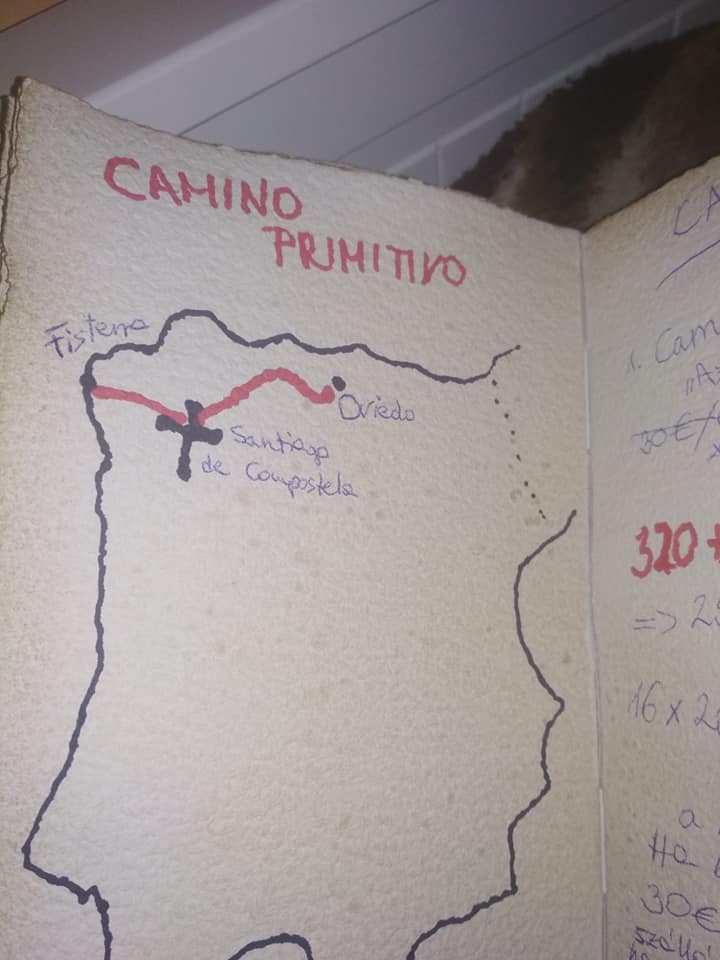 CAMINO
PRIMITIVO
Fisterra
Oviedo
Santiago
de Compostela
CA
1. Cam
"Az
30€/
320+
=> 28
16 x 20
a
Ha
30€